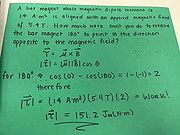 A bar magnet whose magnetic dipole moment is
14 A·m² is aligned with an applied magnetic field
of 5.4 T. How much work must you do to rotate
the bar magnet 180° to point in the direction
opposite to the magnetic field?
τ⃗ = μ⃗ × B⃗
|τ⃗| = |μ⃗||B⃗| cos θ
for 180° → cos(0) - cos(180) = 1-(-1) = 2
therefore
|τ⃗| = (14 A·m²)(5.4 T)(2) = Work!
|τ⃗| = 151.2 J